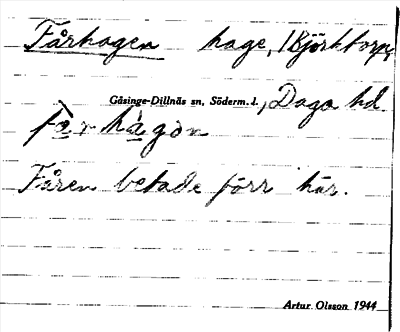 Fårhagen hage, Björktorp,
Gåsinge-Dillnäs sn, Söderm. l., Daga hd.
få̀rhà̄gən
Fåren betade förr här.
Artur Olsson 1944